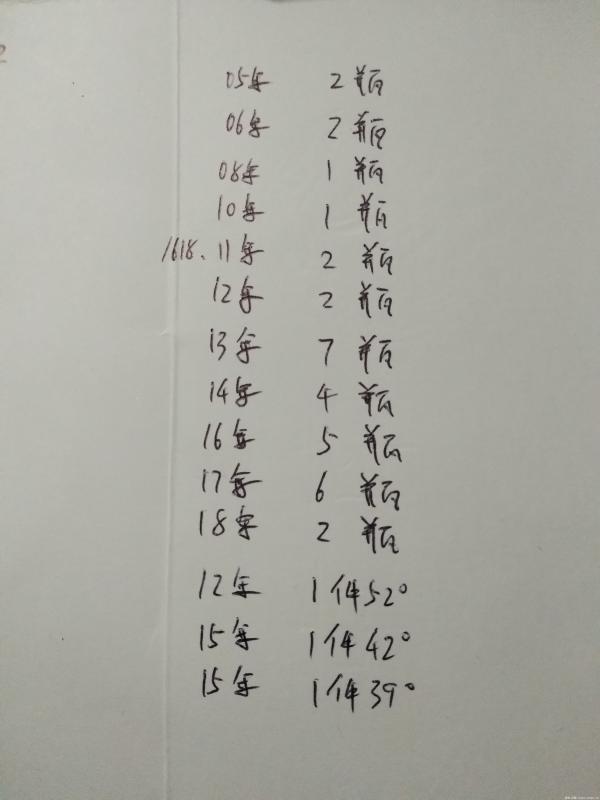 05年 2瓶
06年 2瓶
08年 1瓶
10年 1瓶
1618、11年 2瓶
12年 2瓶
13年 7瓶
14年 4瓶
16年 5瓶
17年 6瓶
18年 2瓶
12年 1件52°
15年 1件42°
15年 1件39°